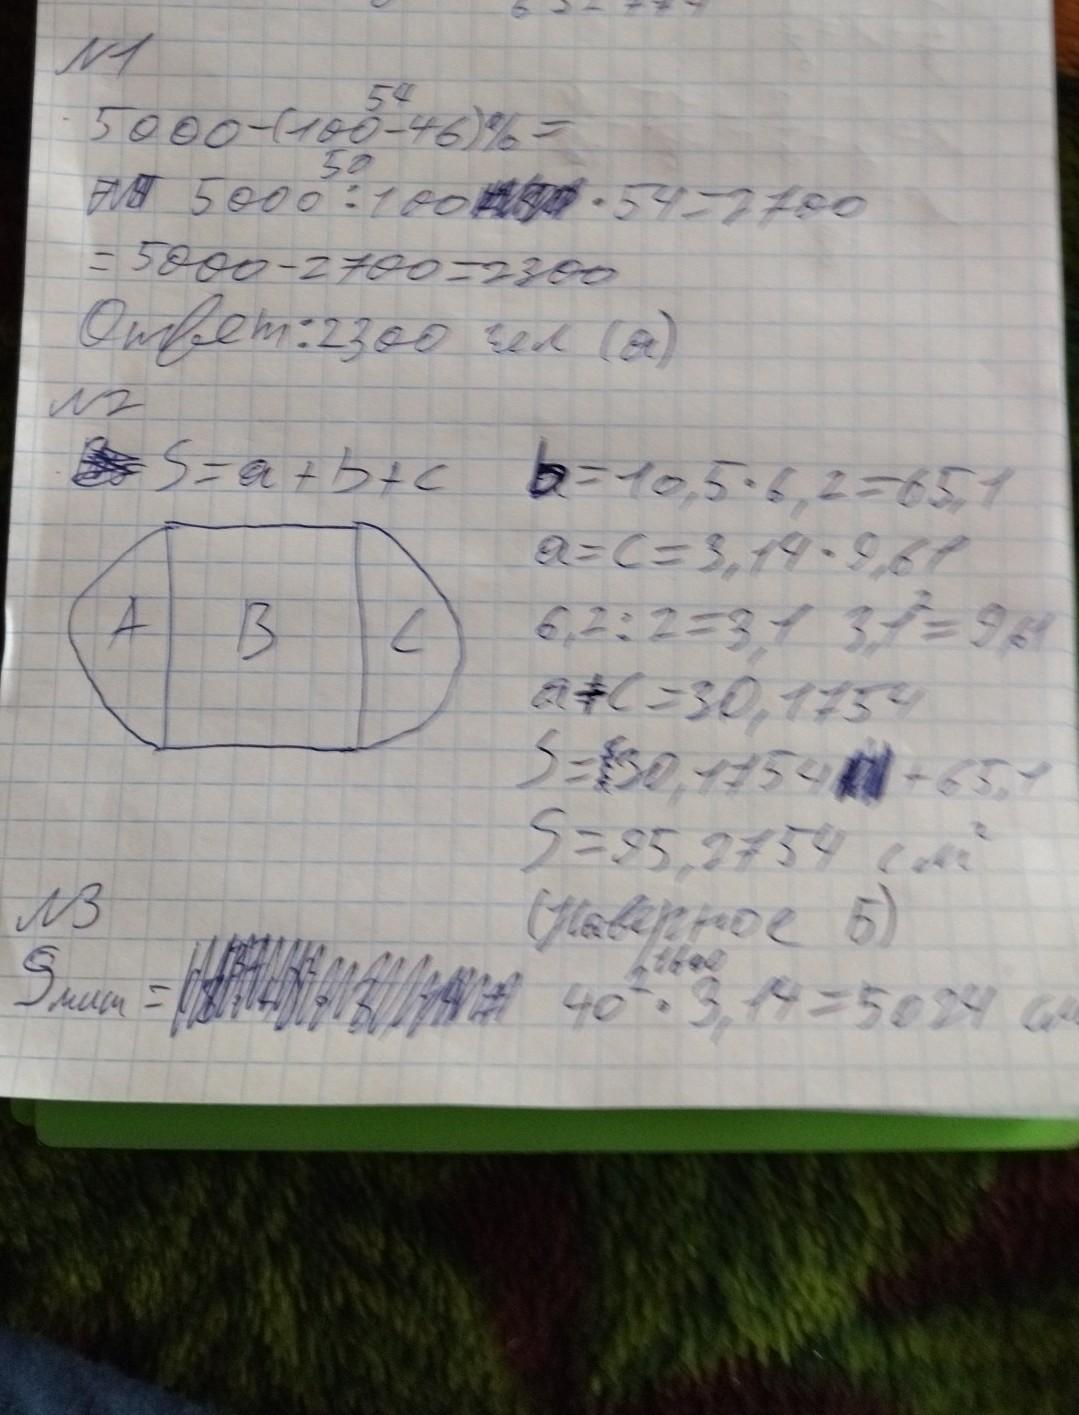 N1
54
5000-(100-46)%=
50
5000:100·54=2700
=5000-2700=2300
Ответ:2300 чел (а)
N2
S=a+b+c
A B C
b=10,5·6,2=65,1
a=c=3,14·9,61
6,2:2=3,1 3,1²=9,61
a+c=30,1754
S=30,1754+65,1
S=95,2754 см²
(наверное Б)
N3
1600
Sлист= 40²·3,14=5024 см